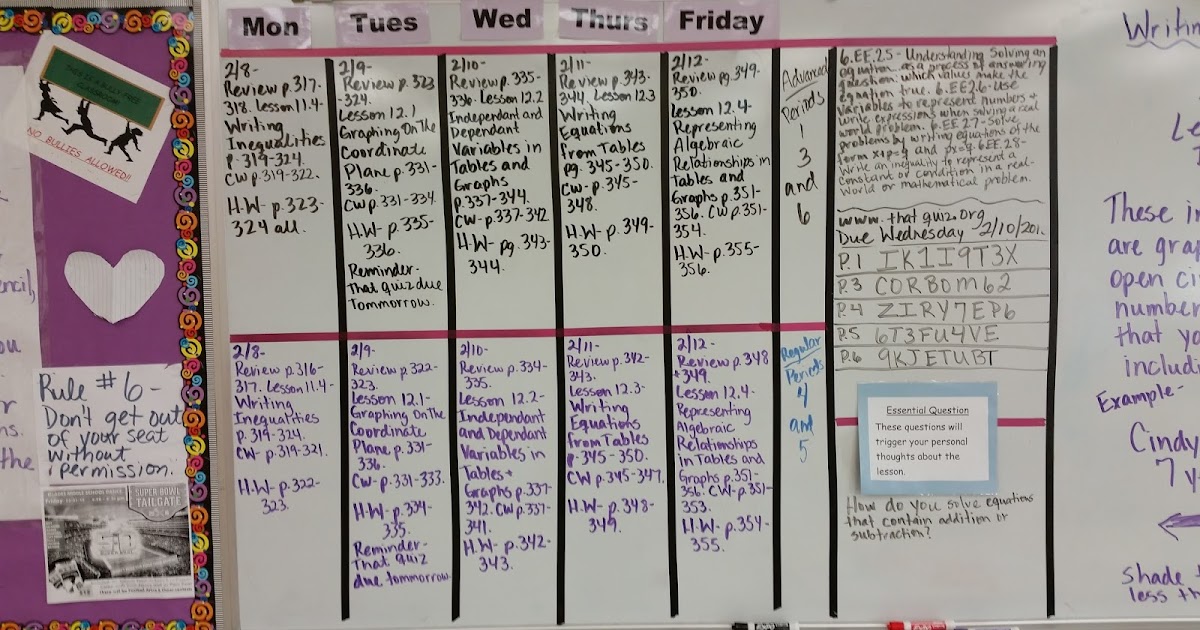 Mon
Tues
Wed
Thurs
Friday
2/8-
Review p.317-
318. Lesson 11.4-
Writing
Inequalities
p.319-324.
CW p.319-322.
H.W- p.323-
324 all.
2/9-
Review p.323
-324.
Lesson 12.1
Graphing On The
Coordinate
Plane p.331-
336.
CW p.331-334.
H.W- p.335-
336.
Reminder-
That quiz due
Tommorrow.
2/10-
Review p.335-
336. Lesson 12.2
Independant and
Dependant
Variables in
Tables and
Graphs
p.337-344.
CW-p.337-342
H.W- pg.343-
344.
2/11-
Review p.343-
344. Lesson 12.3
Writing
Equations
from Tables
pg.345-350.
CW-p.345-
348.
H.W- p.349-
350.
2/12-
Review pg.349-
350.
Lesson 12.4-
Representing
Algebraic
Relationships in
Tables and
Graphs p.351-
356. CW p.351-
354.
H.W- p.355-
356.
Advanced
Periods
1
3
and
6
6.EE.2.5- Understanding Solving an
equation as a process of answering
question which values make the
Equation true. 6.EE.2.6-Use
Variables to represent numbers +
write expressions when solving a real
world problem. 6.EE.2.7-Solve
problems by writing equations of the
form x+p=q and px=q. 6.EE.2.8-
Write an inequality to represent a
Constant or condition in a real-
World or mathematical problem.
www.thatquiz.org
Due Wednesday 2/10/201.
P.1 IK1I9T3X
P.3 CORBOM62
P.4 ZIRY7EP6
P.5 6T3FU4VE
P.6 9KJETUBT
2/8-
Review p.316-
317. Lesson 11.4-
Writing
Inequalities
p.319-324.
CW- p.319-321.
H.W- p.322-
323.
2/9-
Review p.322-
323.
Lesson 12.1-
Graphing On The
Coordinate
Plane p.331-
336.
CW- p.331-333.
H.W- p.334-
335.
Reminder-
That quiz
due tommorrow.
2/10-
Review p.334-
335.
Lesson 12.2-
Independant
and Dependant
Variables in
Tables +
Graphs p.337-
342. CW p.337-
341.
H.W- p.342-
343.
2/11-
Review p.342-
343.
Lesson 12.3-
Writing
Equations
from Tables
p.345-350.
CW p.345-347.
H.W- p.348-
349.
2/12-
Review p.348
+349.
Lesson 12.4-
Representing
Algebraic
Relationships
in Tables and
Graphs p.351-
356. CW-p.351-
353.
H.W- p.354-
355.
Regular
Periods
4
and
5
Essential Question
These questions will
trigger your personal
thoughts about the
lesson.
How do you solve equations
that contain addition or
subtraction?
THIS IS A BULLY-FREE
CLASSROOM
NO BULLIES ALLOWED!!
Rule #6-
Don't get out
of your seat
without
permission.
SUPER BOWL
TAILGATE
These in
are grap
open ci
number
that yo
includi
Example-
Cindy
7 y
shade
less th